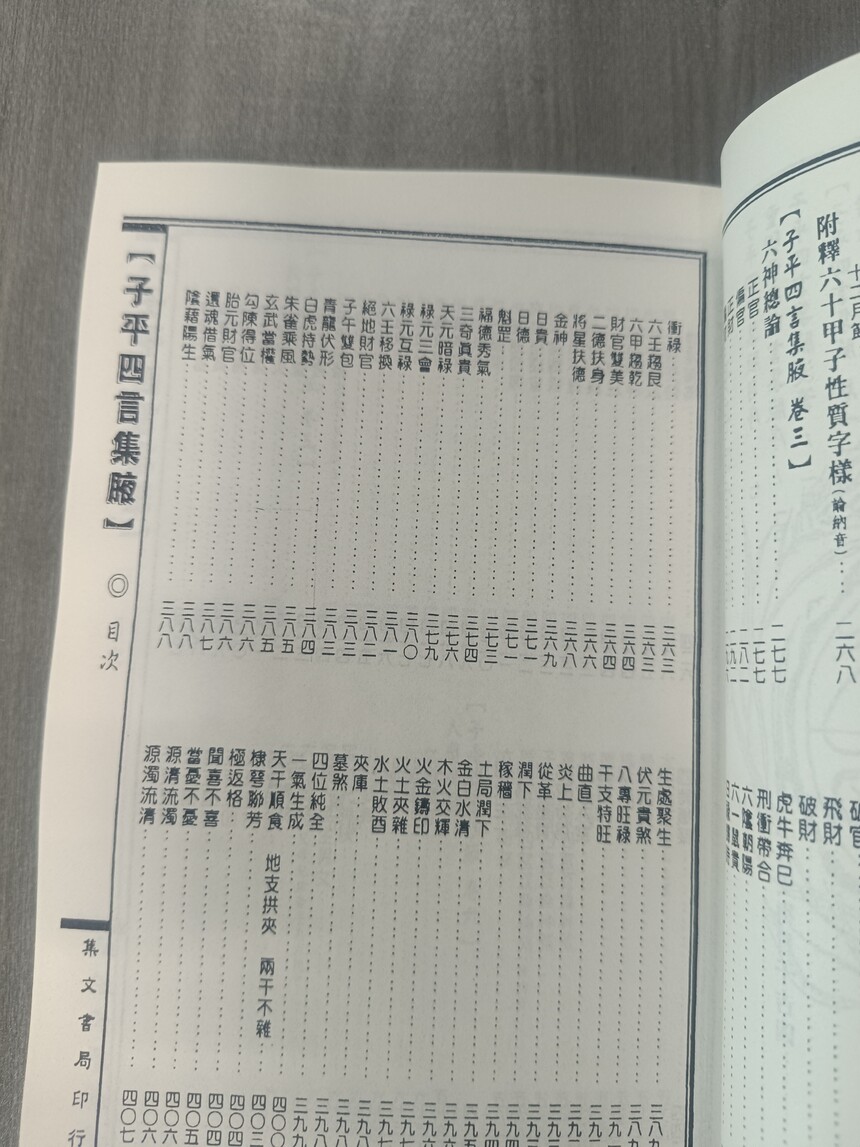 附釋六十甲子性質字樣(論納音)…二六八
【子平四言集腋 卷三】
六神總論…二七七
正官…二七七
偏官…二八二
破財
飛財
虎牛奔巳
刑衝帶合
六陰朝陽
六一鼠貴
衝祿…三六三
六壬趨艮…三六三
六甲趨乾…三六四
財官雙美…三六四
二德扶身…三六六
將星扶德…三六八
金神…三六九
日貴…三七一
日德…三七一
魁罡
福德秀氣…三七三
三奇真貴…三七四
天元暗祿…三七六
祿元三會…三七九
祿元互祿…三八〇
六壬移換…三八一
絕地財官…三八二
子午雙包…三八三
青龍伏形…三八三
白虎持勢…三八四
朱雀乘風…三八五
玄武當權…三八五
勾陳得位…三八六
胎元財官…三八六
還魂借氣…三八七
陰藉陽生…三八八
生處聚生…三八九
伏元貴煞
八專旺祿
干支特旺
曲直
炎上
從革
潤下
稼穡
土局潤下
金白水清
木火交輝
火金鑄印
火土夾雜
水土敗酉
夾庫
墓煞
四位純全
一氣生成
天干順食 地支拱夾 兩干不雜…四〇〇
棣萼聯芳…四〇三
極返格…四〇四
聞喜不喜…四〇四
當憂不憂…四〇五
源清流濁…四〇六
源濁流清…四〇六
四〇七
【子平四言集腋】
◎ 目次
集文書局印行